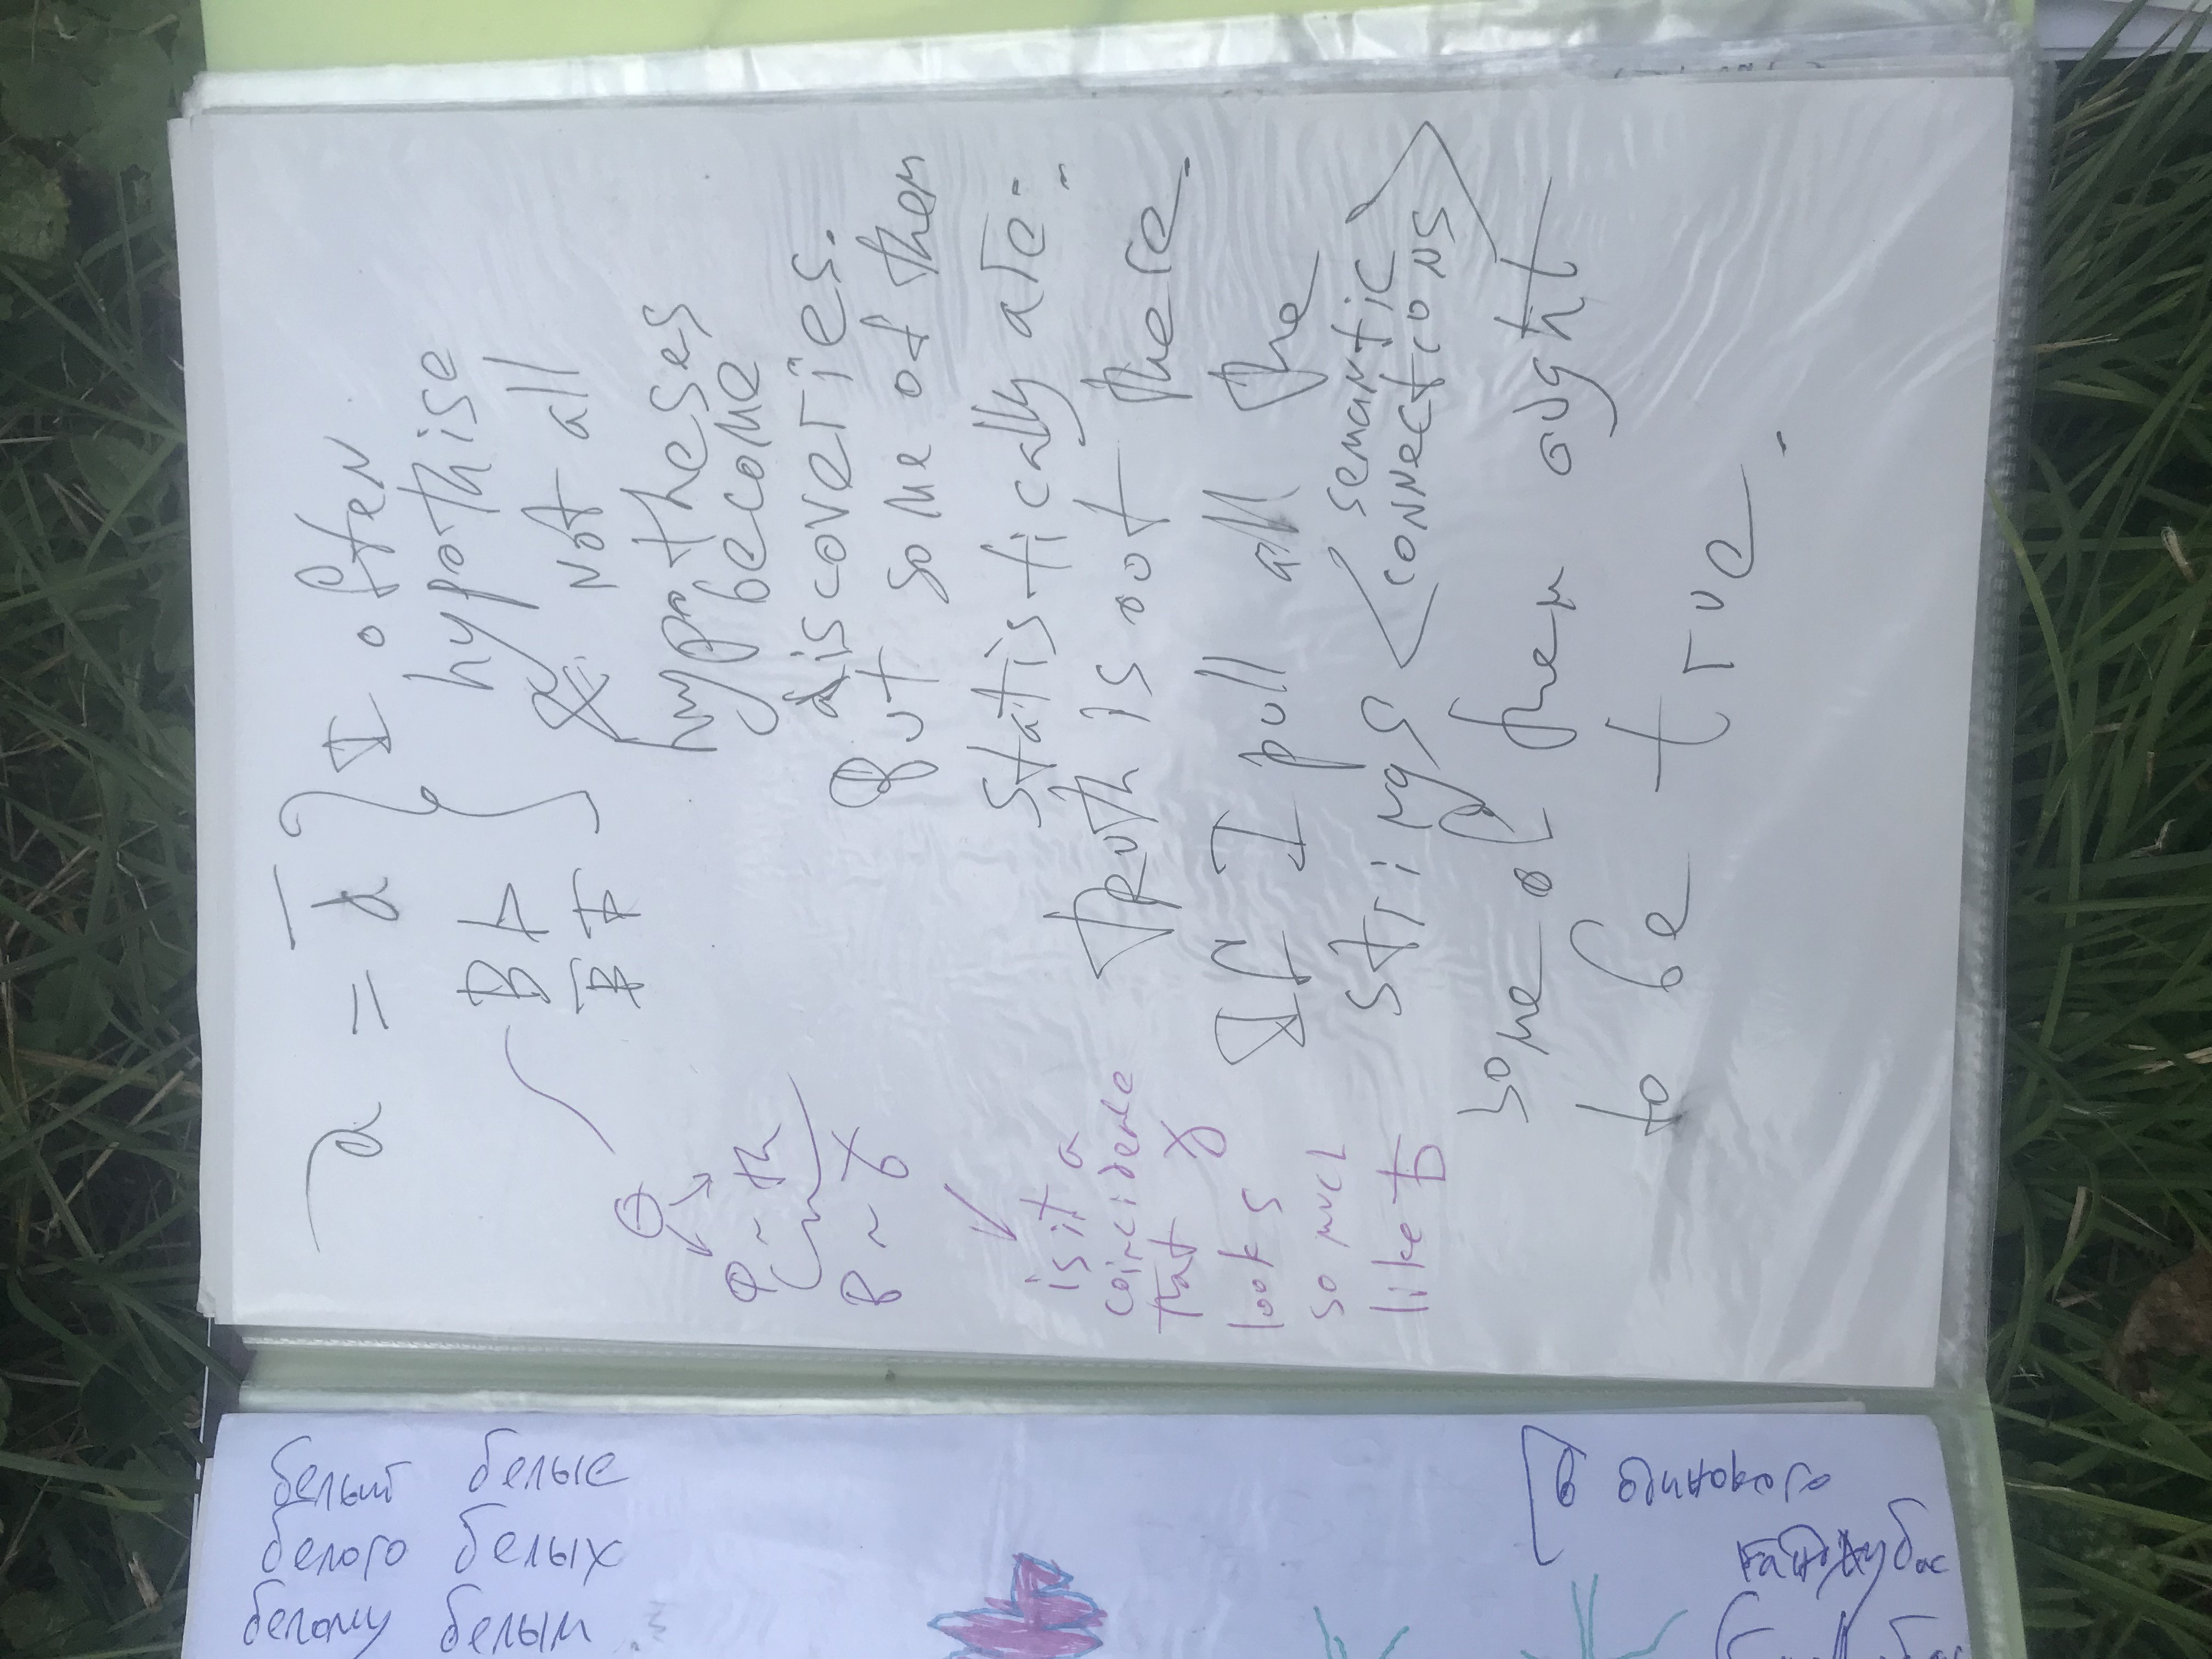 белый белые
белого белых
белому белым
В винтового
a = d
I often
hypothise
Not all
hypotheses
become
discoveries.
But some of them
statistically are:
truth is out there.
If I pull all the
strings < semantic
connections >
some of them ought
to be true.
B Ь
Θ
Ф ~ th
B ~ ɣ
is it a
coincidence
that ɣ
looks
so much
like Ъ